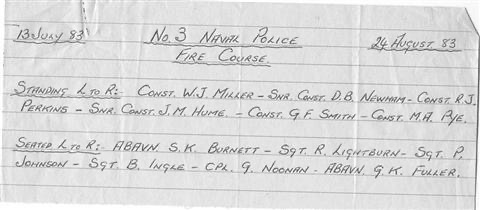 13 JULY 83 No. 3 NAVAL POLICE 24 AUGUST 83
FIRE COURSE.
STANDING L TO R:- CONST. W.J. MILLER - SNR. CONST. D.B. NEWHAM - CONST. R.J.
PERKINS - SNR. CONST. J.M. HUME. - CONST. G.F. SMITH - CONST. M.A. PYE.
SEATED L TO R:- ABAVN. S.K. BURNETT - SGT. R. LIGHTBURN - SGT. P.
JOHNSON - SGT. B. INGLE - CPL. G. NOONAN - ABAVN. G.K. FULLER.